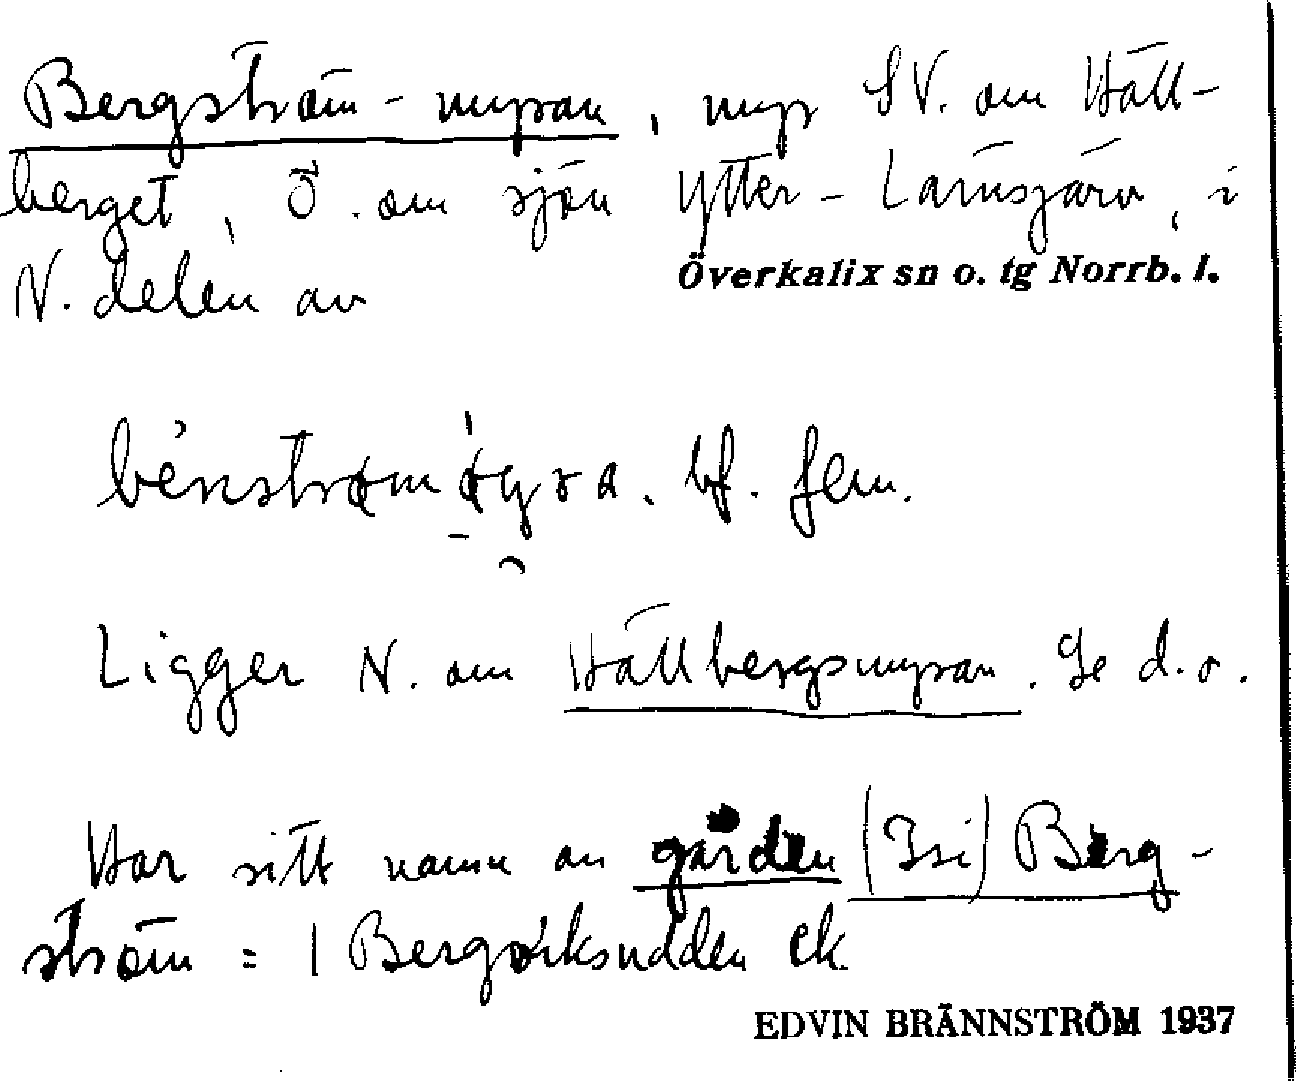 Bergström-myran, myr SV. om Häll-
berget, Ö. om sjön Ytter-Lansjärv, i
N. delen av Överkalix sn o. tg Norrb. l.
bf. fem.
Ligger N. om Hällbergsmyran. Se d.o.
Har sitt namn av gården (Isi) Berg-
ström = 1 Bergviksudden ek.
EDVIN BRÄNNSTRÖM 1937